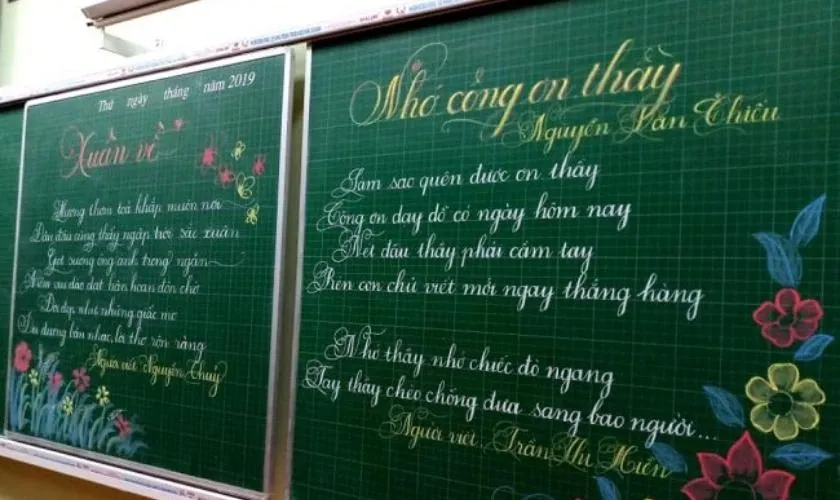 Thứ ngày tháng năm 2019
Xuân về
Hương thơm toả khắp muôn nơi
Đâu đâu cũng thấy ngập trời sắc xuân
Giọt sương óng ánh trong ngần
Niềm vui dào dạt hân hoan đón chờ
Đời đẹp như những giấc mơ
Du dương bản nhạc, lời thơ rộn ràng
Người viết Nguyễn Thuỷ
Nhớ công ơn thầy
Nguyễn Văn Thiều
Làm sao quên được ơn thầy
Công ơn dạy dỗ có ngày hôm nay
Nét đầu thầy phải cầm tay
Rèn con chữ viết mới ngay thẳng hàng
Nhớ thầy nhớ chiếc đò ngang
Tay thầy chèo chống đưa sang bao người...
Người viết: Trần Thu Hiền